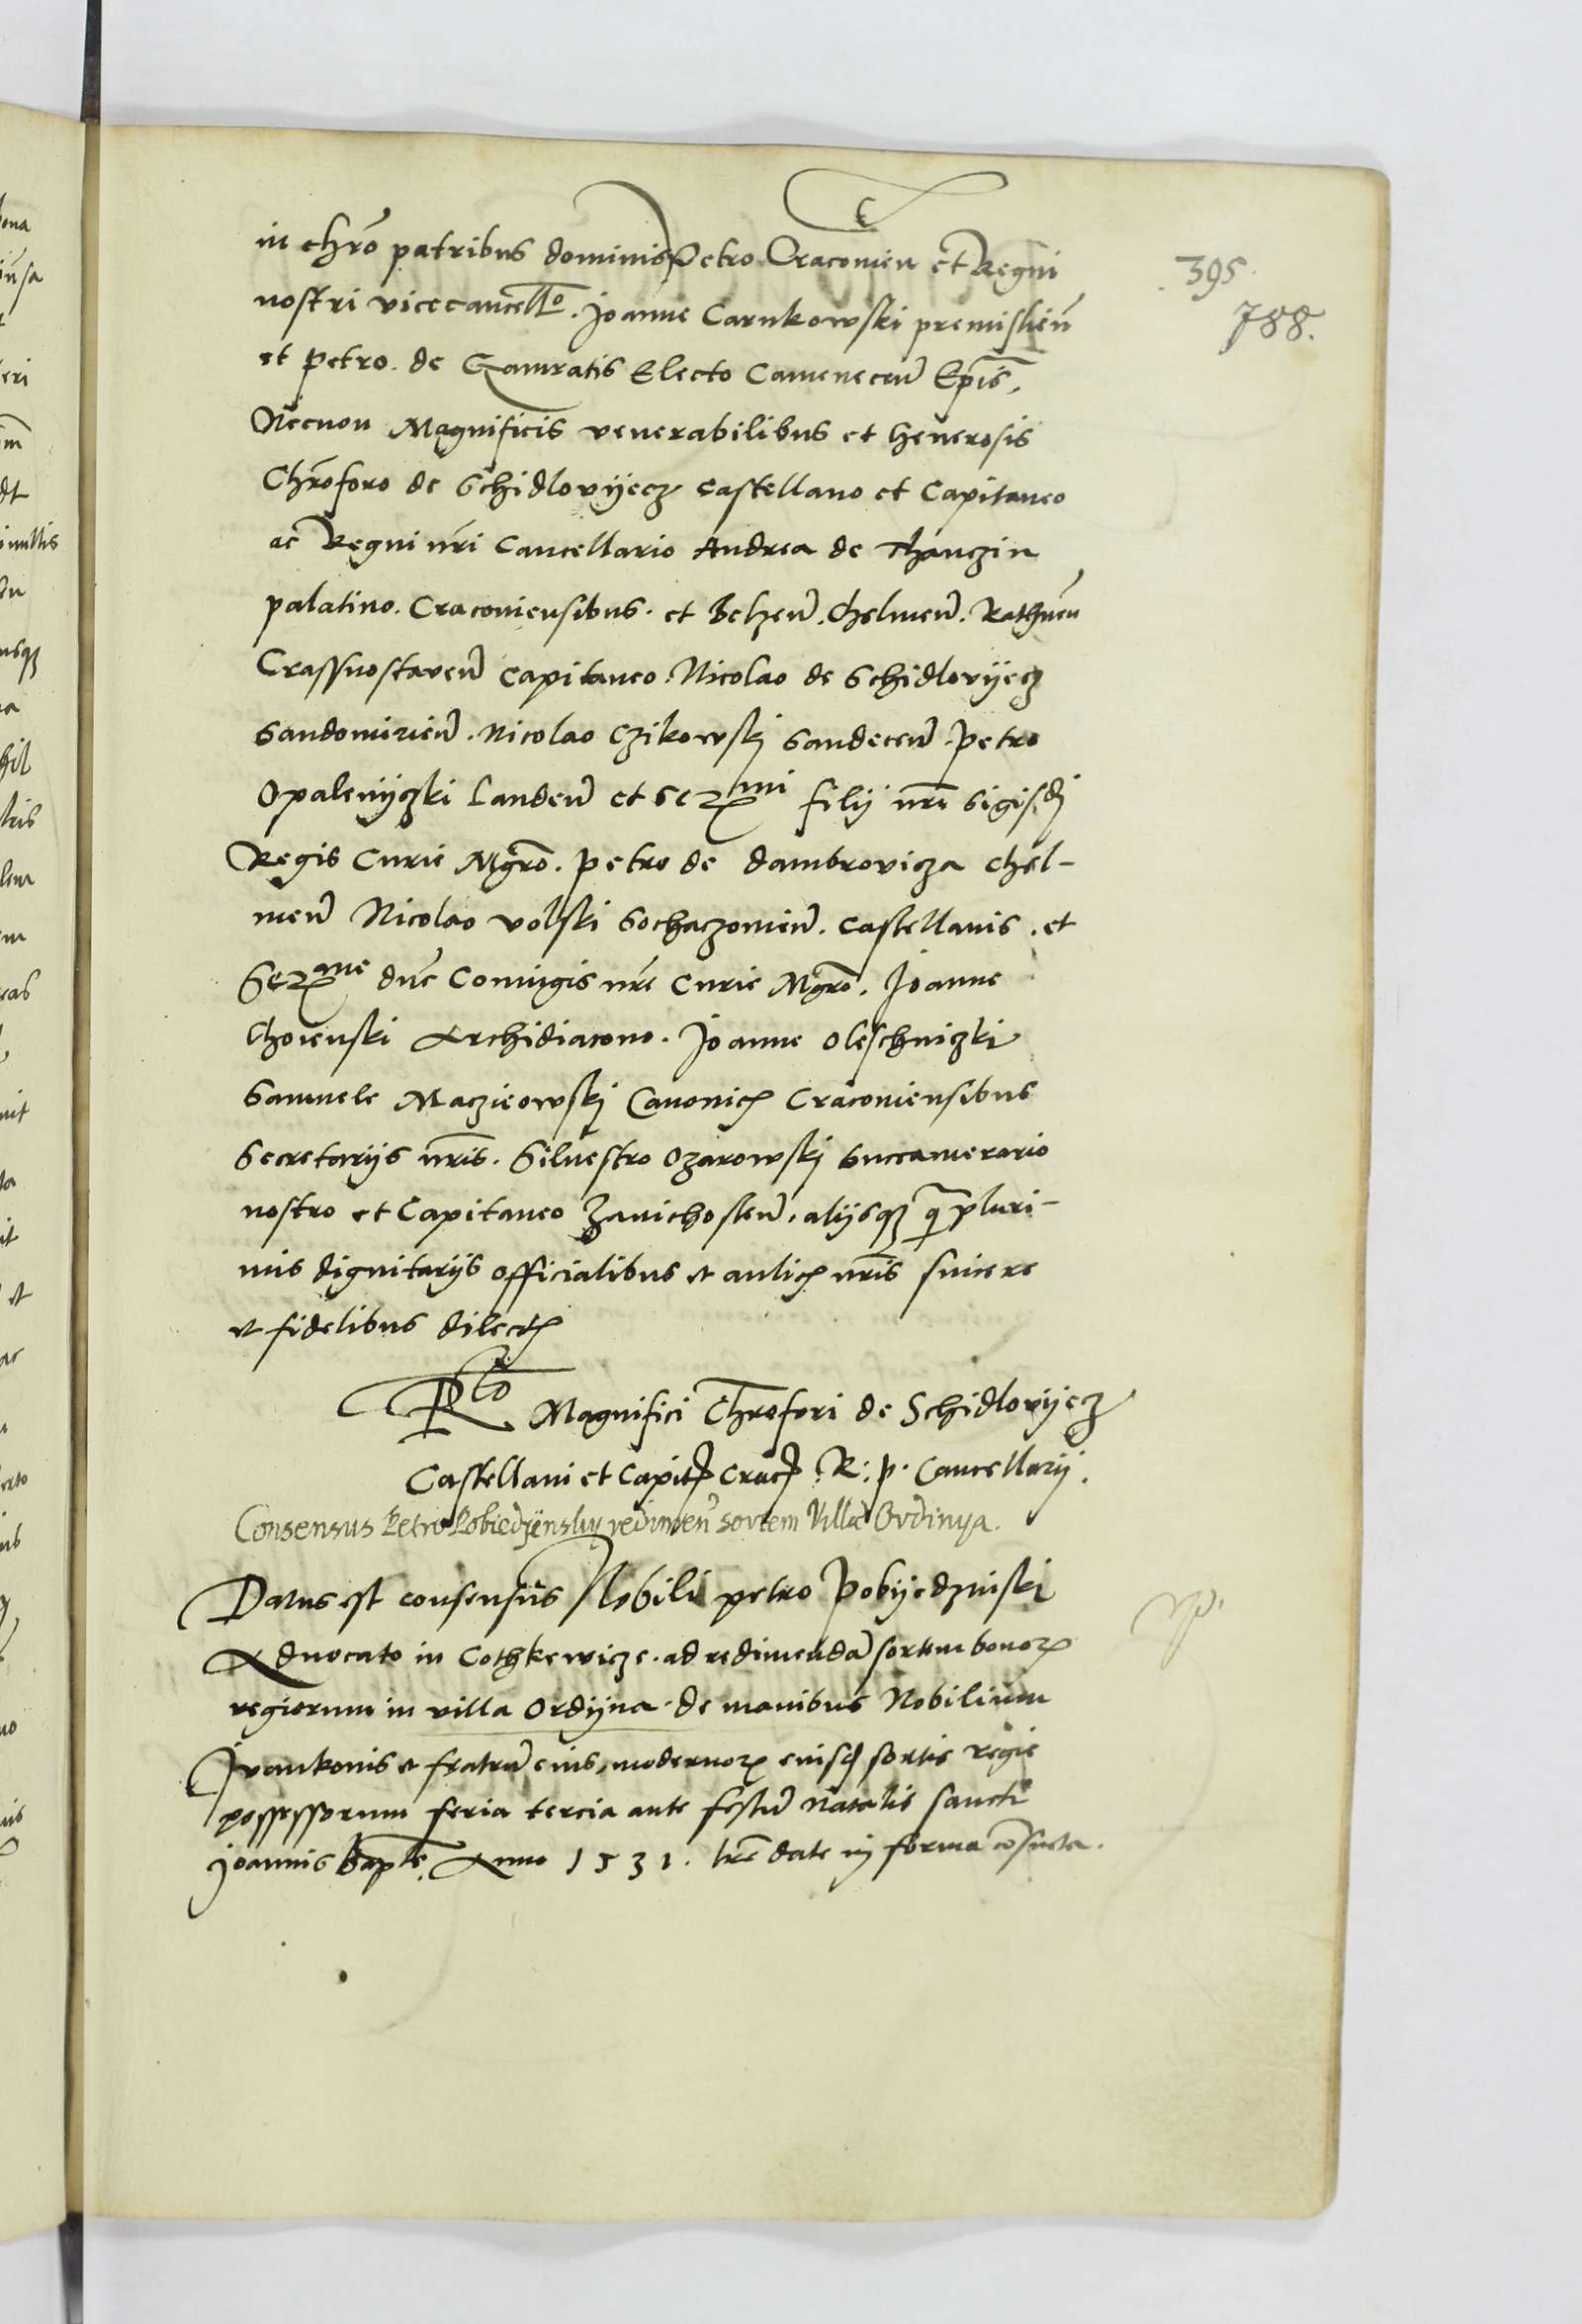 in chro patribus dominis Petro Cracovien et Regni
395
nostri vicecancello. Joanne Carnkowski premislien
788.
et petro de Gamratis Electo Camenecen Epis,
Necnon Magnificis venerabilibus et Generosis
Chroforo de Schidlovijecz castellano et Capitaneo
ac Regni nri Cancellario Andrea de Thanczin
palatino. Cracoviensibus. et Belzen. Chelmen. Rathnen
Crassnostaven capitaneo. Nicolao de Schidlovijecz
Sandomirien. Nicolao Czikowskj Sandecen. petro
Opalenijczki Landen et Ser mi filij nri Sigisdj
Regis Curie Mgro. petro de dambrovicza Chel-
men Nicolao volski Sochaczovien. castellanis. et
Ser me dne Coniugis nre Curie Mgro. Joanne
Choienski Archidiacono. Joanne Oleschniczki
Samuele Maczieowskj Canonic Cracoviensibus
Secretarijs nris. Siluestro Ozarowskj Succamerario
nostro et Capitaneo Zavichosten. alijsq q pluri-
mis dignitarijs officialibus et aulic nris sincere
et fidelibus dilect
Rlo Magnifici Chrofori de Schidlovijecz
Castellani et Capit Crac. R: p. Cancellarij.
Consensus Petro Pobiedzienskij redimen sortem Villae Ordinya.
Datus est consensus Nobili petro Pobijedzinski
Aduocato in Cothkewicze. ad redimenda sortem bonor
regiorum in villa Ordijna. de manibus Nobilium
Ivankonis et fratru eius, modernor eiusd sortis regie
possessorum feria tercia ante festu Natalis sancti
Joannis bapte. Anno 1531. lre date in forma cosueta.